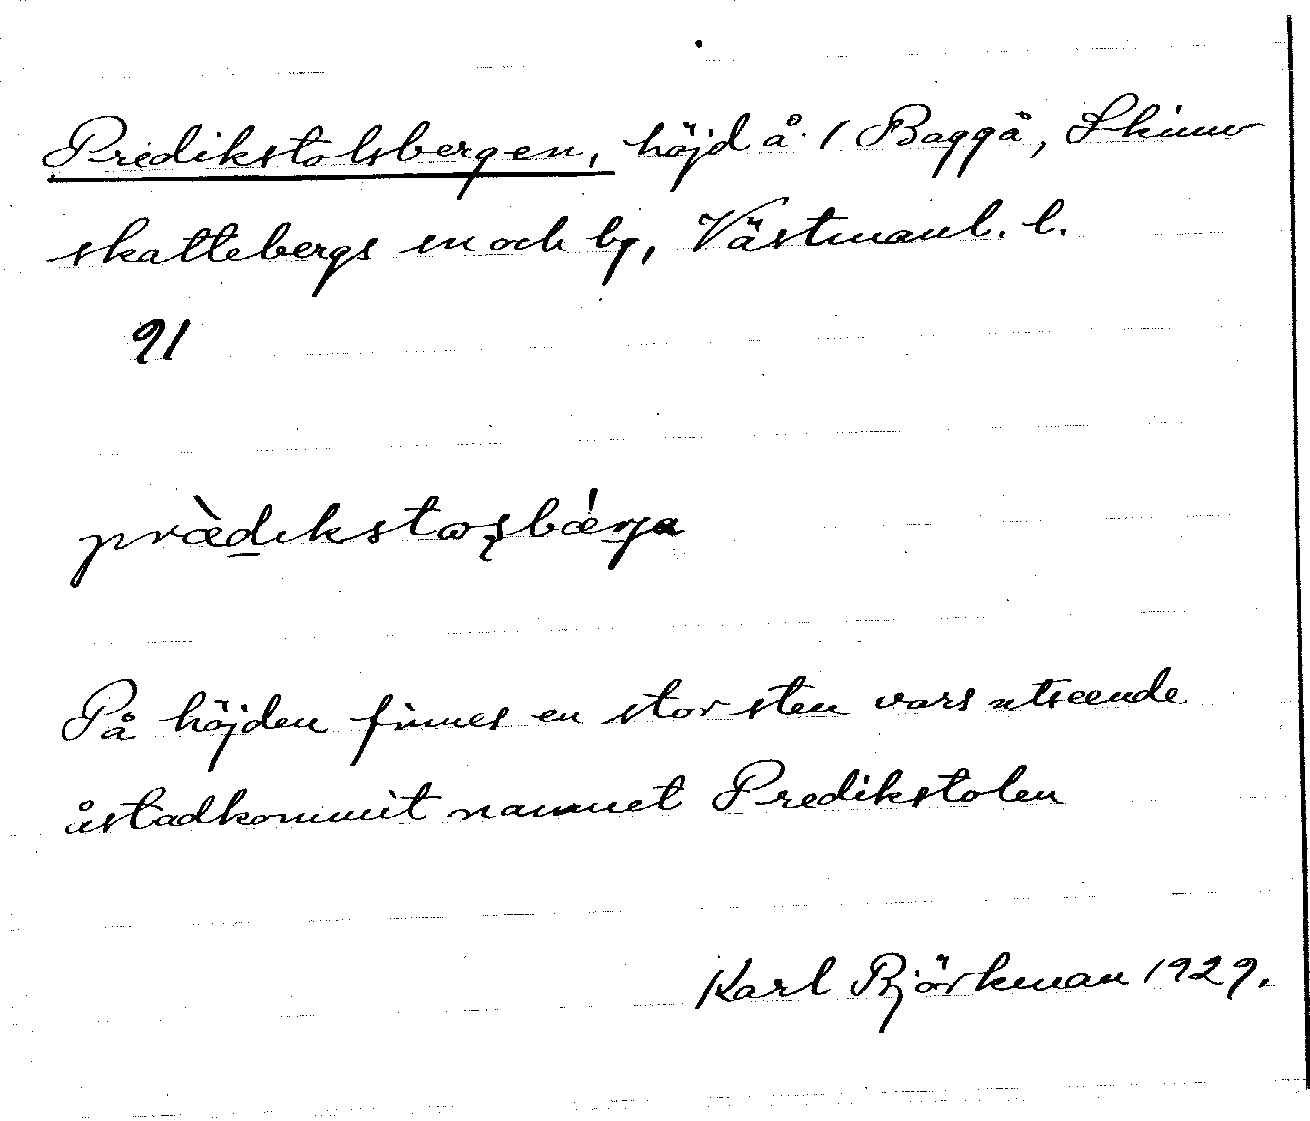 Predikstolsbergen, höjd å 1 Baggå, Skinn
skattebergs sn och by, Västmanl. l.
91
prædikstωʂbærja
På höjden finnes en stor sten vars utseende
åstadkommit namnet Predikstolen
Karl Björkman 1929.